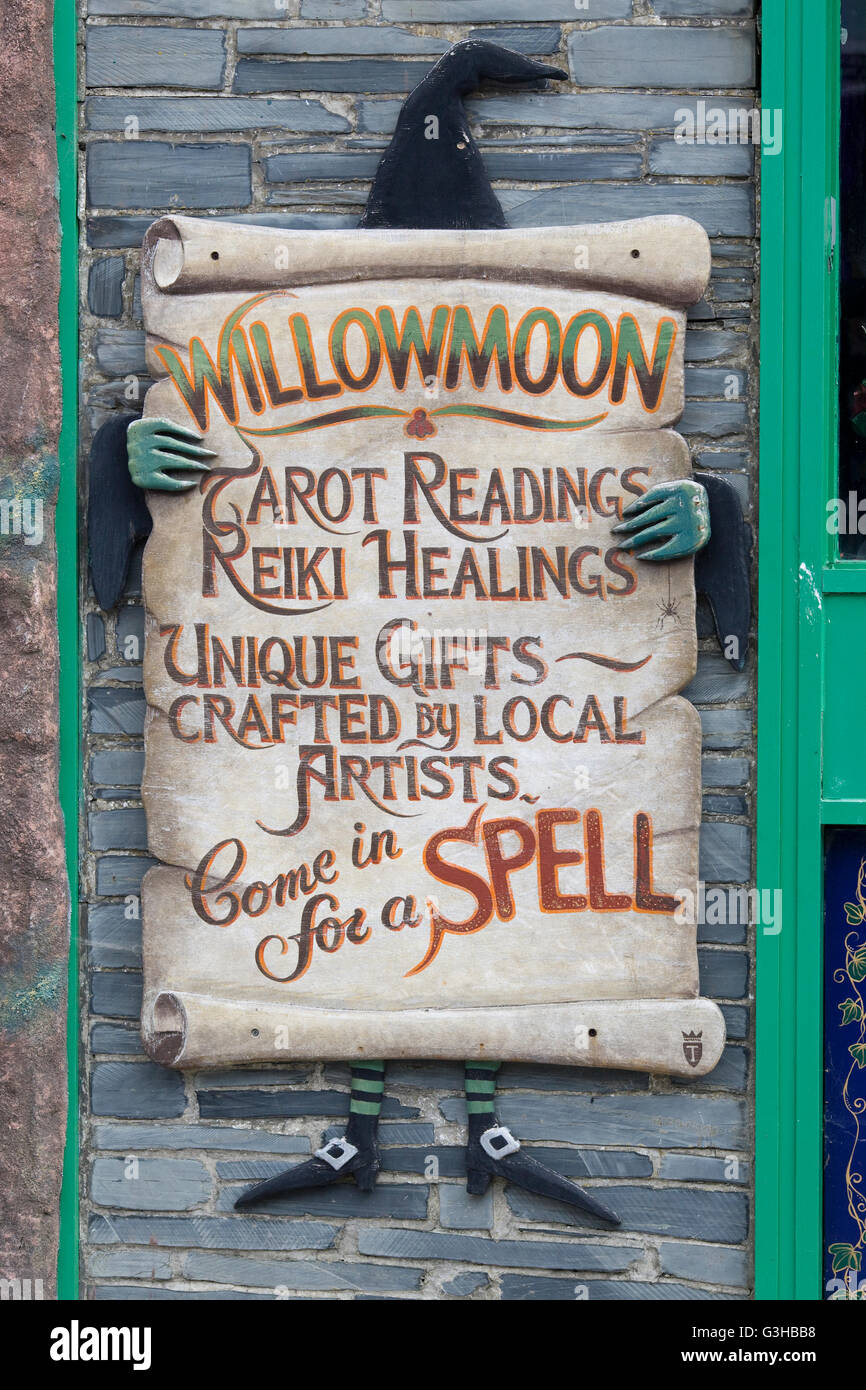 WILLOWMOON
TAROT READINGS
REIKI HEALINGS
UNIQUE GIFTS ~
CRAFTED BY LOCAL
ARTISTS ~
Come in
for a SPELL
T
alamy stock photo
G3HBB8
www.alamy.com